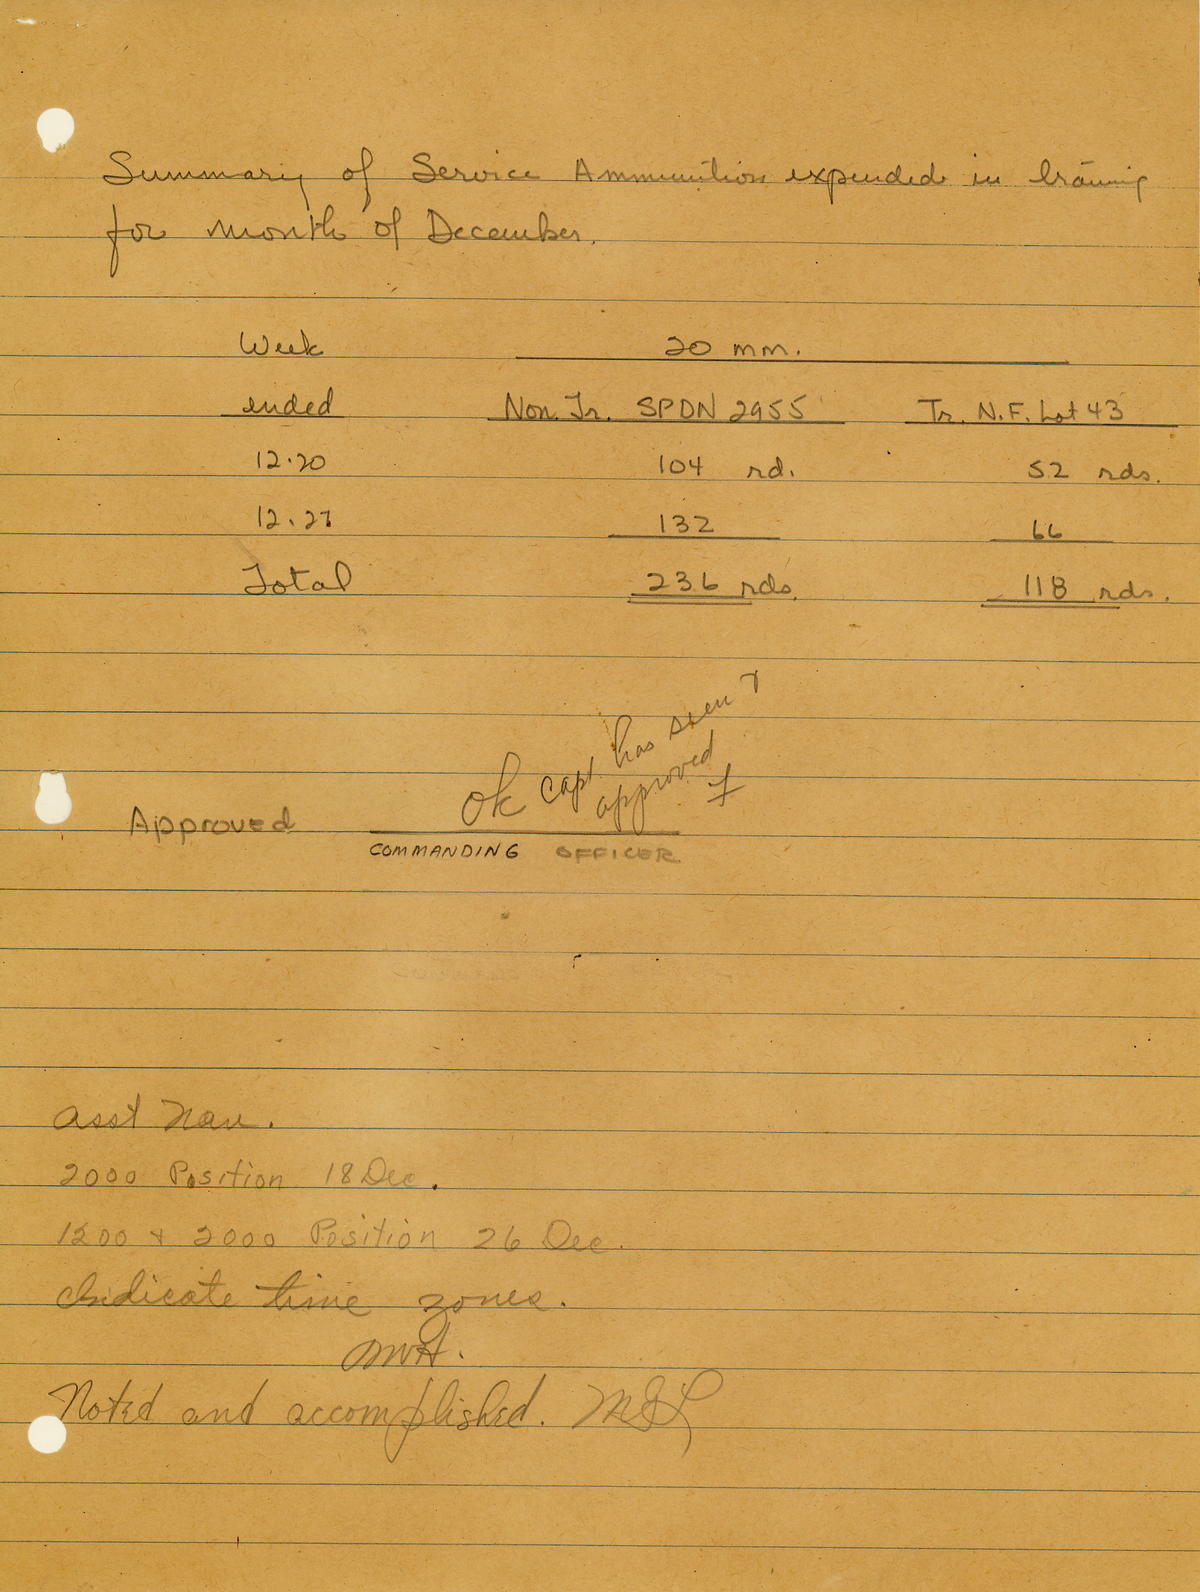 Summary of Service Ammunition expended in training
for month of December.
Week 20 mm.
ended Non. Tr. SPDN 2955 Tr. N.F. Lot 43
12.20 104 rd. 52 rds.
12.27 132 66
Total 236 rds. 118 rds.
ok capt has seen &
approved
Approved
COMMANDING OFFICER
Asst Nav.
2000 Position 18 Dec.
1200 & 2000 Position 26 Dec.
Indicate time zones.
MWH.
Noted and accomplished. MSL